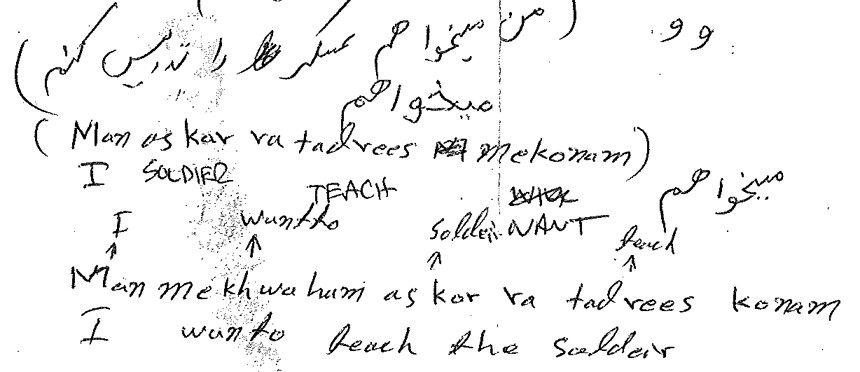 و و (من میخواهم عسکر را تدریس کنم)
میخواهم
(Man as kar ra tadrees mekonam)
I SOLDIER TEACH WANT میخواهم
I want to soldeir teach
Man mekhwaham as kar ra tadrees konam
I wanto teach the soldeir